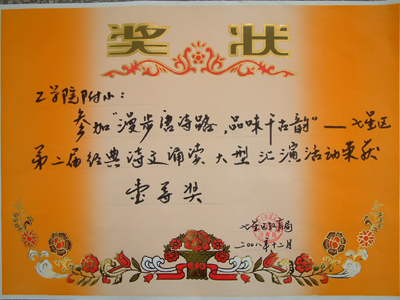 奖状
工学院附小：
参加"漫步唐诗路，品味千古韵"——七星区
第二届经典诗文诵读大型汇演活动荣获
壹等奖
七星区教育局
二00八年十二月